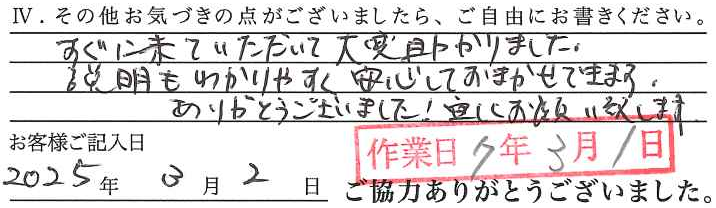 Ⅳ．その他お気づきの点がございましたら、ご自由にお書きください。
すぐに来ていただいて大変助かりました。
説明もわかりやすく安心しておまかせできます。
ありがとうございました！宜しくお願い致します
お客様ご記入日
作業日 7年3月1日
2025年 3月2日
ご協力ありがとうございました。